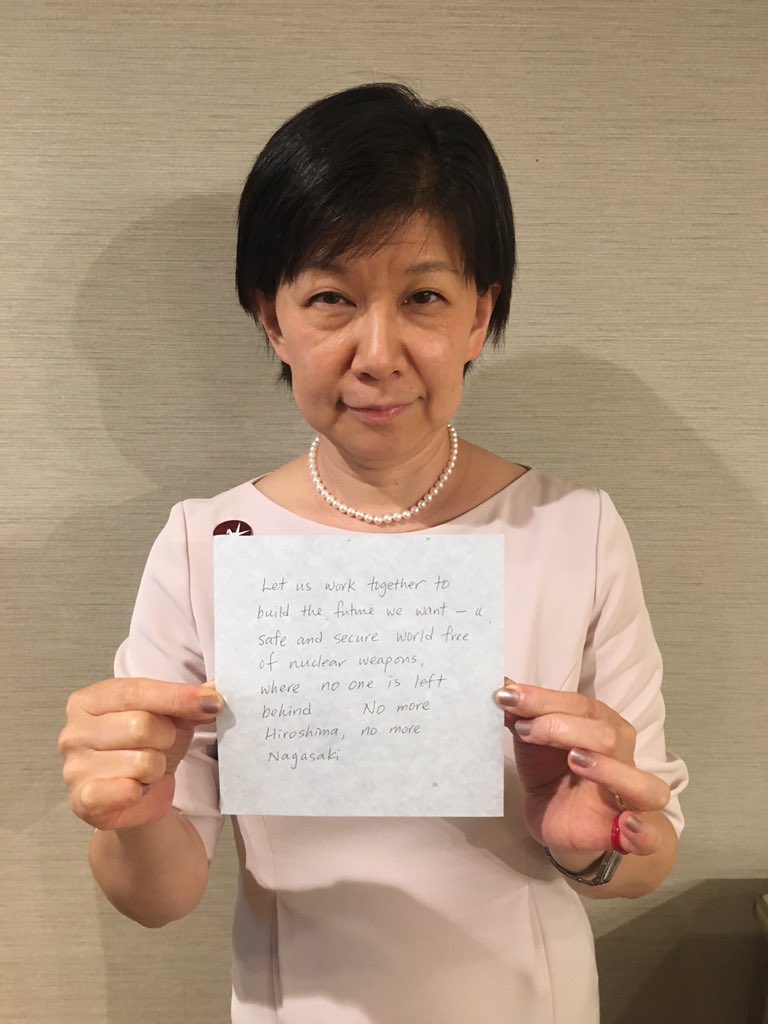 Let us work together to
build the future we want – a
safe and secure world free
of nuclear weapons,
where no one is left
behind No more
Hiroshima, no more
Nagasaki